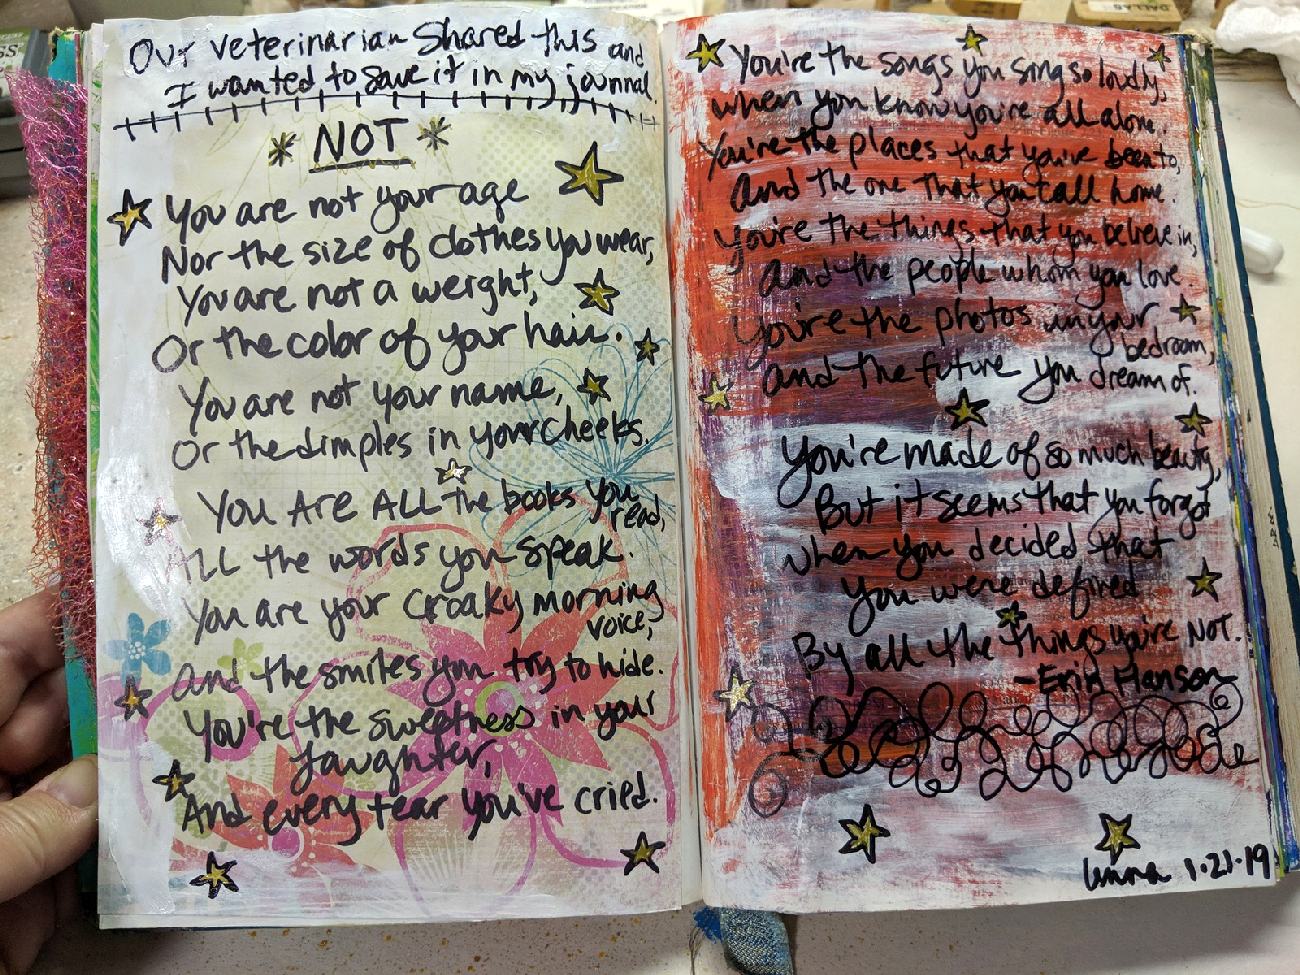 Our veterinarian shared this and
I wanted to save it in my journal.
NOT
You are not your age
Nor the size of clothes you wear,
You are not a weight,
Or the color of your hair.
You are not your name,
Or the dimples in your cheeks.
You ARE ALL the books you
read,
ALL the words you speak.
You are your croaky morning
voice,
And the smiles you try to hide.
You're the sweetness in your
laughter,
And every tear you've cried.
You're the songs you sing so loudly,
when you know you're all alone.
You're the places that you've been to,
And the one that you call home.
You're the things that you believe in,
And the people whom you love.
You're the photos in your
bedroom,
And the future you dream of.
You're made of so much beauty,
But it seems that you forgot
when you decided that
you were defined
By all the things you're NOT.
-Erin Hanson
1.21.19
DALLAS